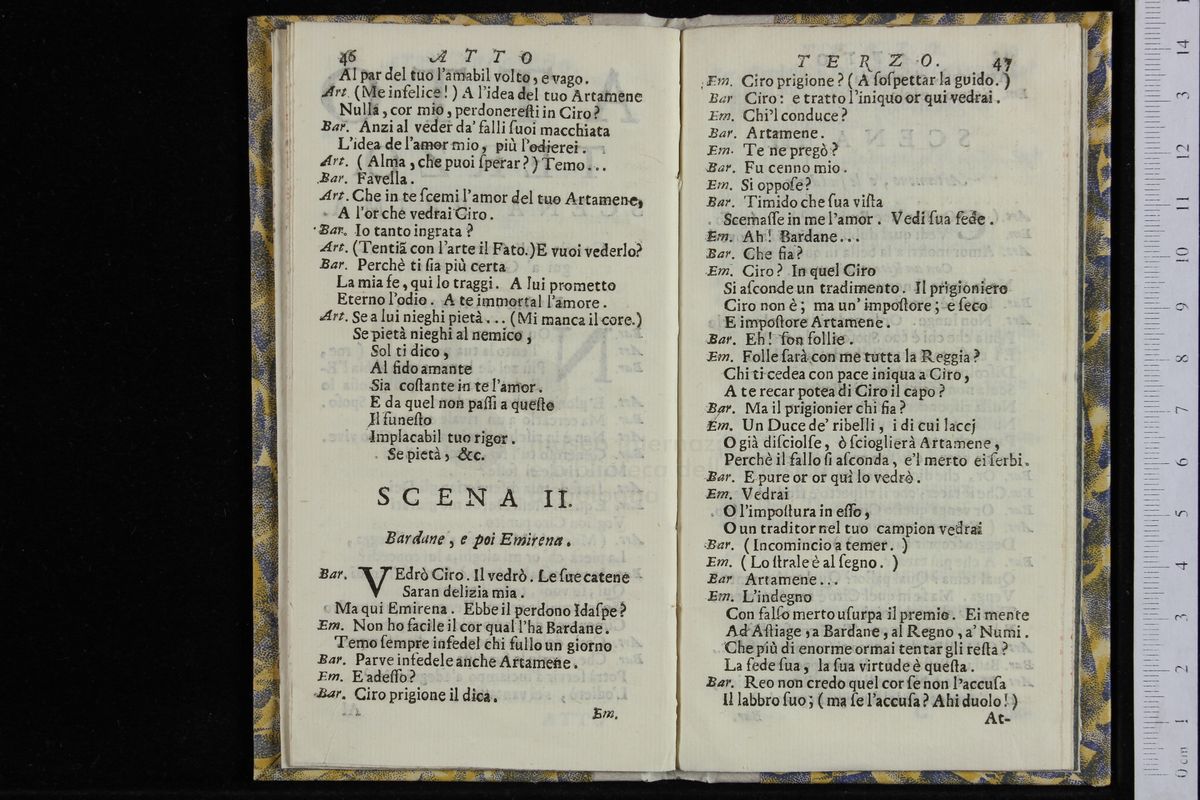 46 ATTO
Al par del tuo l'amabil volto, e vago.
Art (Me infelice!) A l'idea del tuo Artamene
Nulla, cor mio, perdoneresti in Ciro?
Bar. Anzi al veder da' falli ſuoi macchiata
L'idea de l'amor mio, più l'odierei.
Art. (Alma, che puoi ſperar?) Temo...
Bar. Favella.
Art. Che in te ſcemi l'amor del tuo Artamene,
A l'or che vedrai Ciro.
Bar. Io tanto ingrata?
Art. (Tentiā con l'arte il Fato.) E vuoi vederlo?
Bar. Perchè ti ſia più certa
La mia fe, qui lo traggi. A lui prometto
Eterno l'odio. A te immortal l'amore.
Art. Se a lui nieghi pietà... (Mi manca il core.)
Se pietà nieghi al nemico,
Sol ti dico,
Al fido amante
Sia coſtante in te l'amor.
E da quel non paſſi a queſto
Il funeſto
Implacabil tuo rigor.
Se pietà, &c.
SCENA II.
Bardane, e poi Emirena.
Bar. VEdrò Ciro. Il vedrò. Le ſue catene
Saran delizia mia.
Ma qui Emirena. Ebbe il perdono Idaſpe?
Em. Non ho facile il cor qual l'ha Bardane.
Temo ſempre infedel chi fullo un giorno
Bar. Parve infedele anche Artamene.
Em. E adeſſo?
Bar. Ciro prigione il dica.
Em.
TERZO. 47
Em. Ciro prigione? (A ſoſpettar la guido.)
Bar Ciro: e tratto l'iniquo or qui vedrai.
Em. Chi'l conduce?
Bar. Artamene.
Em. Te ne pregò?
Bar. Fu cenno mio.
Em. Si oppoſe?
Bar. Timido che ſua viſta
Scemaſſe in me l'amor. Vedi ſua fede.
Em. Ah! Bardane...
Bar. Che fia?
Em. Ciro? In quel Ciro
Si aſconde un tradimento. Il prigioniero
Ciro non è; ma un' impoſtore; e ſeco
E impoſtore Artamene.
Bar. Eh! ſon follie.
Em. Folle ſarà con me tutta la Reggia?
Chi ti cedea con pace iniqua a Ciro,
A te recar potea di Ciro il capo?
Bar. Ma il prigionier chi fia?
Em. Un Duce de' ribelli, i di cui laccj
O già diſciolſe, ò ſcioglierà Artamene,
Perchè il fallo ſi aſconda, e'l merto ei ſerbi.
Bar. E pure or or quì lo vedrò.
Em. Vedrai
O l'impoſtura in eſſo,
O un traditor nel tuo campion vedrai
Bar. (Incomincio a temer.)
Em. (Lo ſtrale è al ſegno.)
Bar Artamene...
Em. L'indegno
Con falſo merto uſurpa il premio. Ei mente
Ad Aſtiage, a Bardane, al Regno, a' Numi.
Che più di enorme ormai tentar gli reſta?
La fede ſua, la ſua virtude è queſta.
Bar. Reo non credo quel cor ſe non l'accuſa
Il labbro ſuo; (ma ſe l'accuſa? Ahi duolo!)
At-
0 cm 1 2 3 4 5 6 7 8 9 10 11 12 13 14